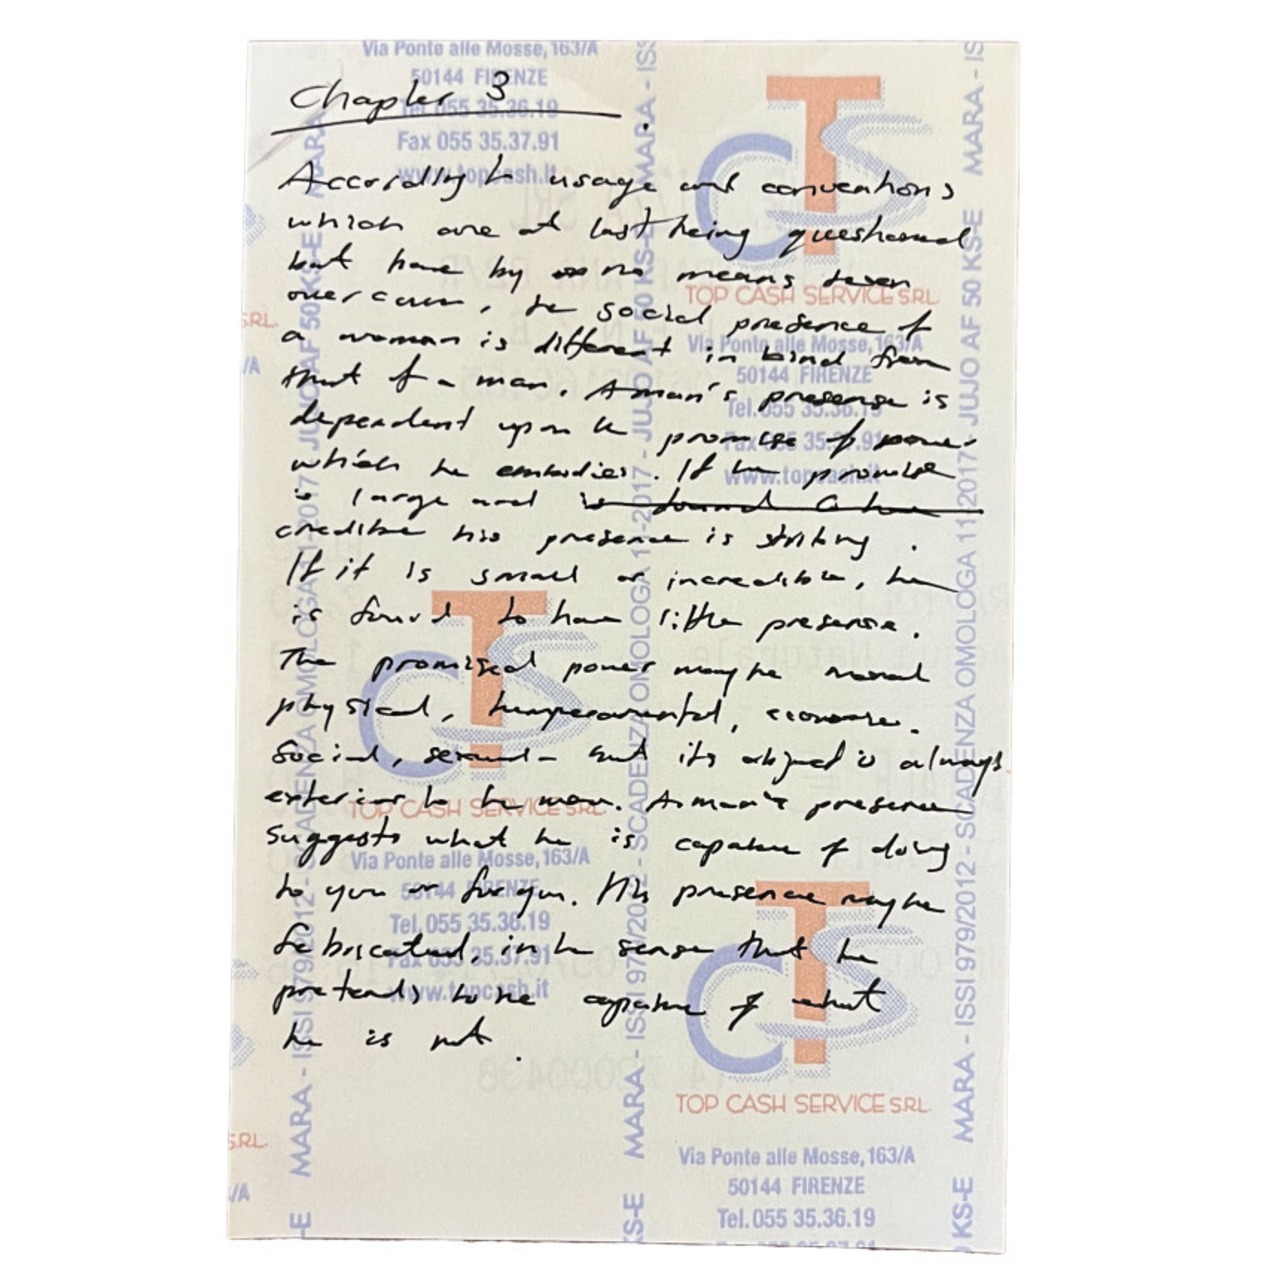 Via Ponte alle Mosse, 163/A
50144 FIRENZE
Tel. 055 35.36.19
Fax 055 35.37.91
www.topcash.it
Chapter 3
According to usage and conventions
which are at last being questioned
but have by no means been
overcome, the social presence of
a woman is different in kind from
that of a man. A man's presense is
dependent upon the promise of power
which he embodies. If the promise
is large and
credible his presence is striking.
If it is small or incredible, he
is found to have little presence.
The promised power may be moral
physical, temperamental, economic.
Social, sexual - but its object is always
exterior to the man. A man's presence
suggests what he is capable of doing
to you or for you. His presence may be
fabricated, in the sense that he
pretends to be capable of what
he is not.
TOP CASH SERVICE S.R.L.
Via Ponte alle Mosse, 163/A
50144 FIRENZE
Tel. 055 35.36.19
Fax 055 35.37.91
www.topcash.it
TOP CASH SERVICE S.R.L.
Via Ponte alle Mosse, 163/A
50144 FIRENZE
Tel. 055 35.36.19
Fax 055 35.37.91
www.topcash.it
TOP CASH SERVICE S.R.L.
Via Ponte alle Mosse, 163/A
50144 FIRENZE
Tel. 055 35.36.19
MARA - ISSI 979/2012 - SCADENZA OMOLOGA 11-2017 - JUJO AF 50 KS-E MARA
MARA - ISSI 979/2012 - SCADENZA OMOLOGA 11-2017 - JUJO AF 50 KS-E MARA - ISS
MARA - ISSI 979/2012 - SCADENZA OMOLOGA 11-2017 - JUJO AF 50 KS-E MARA - IS